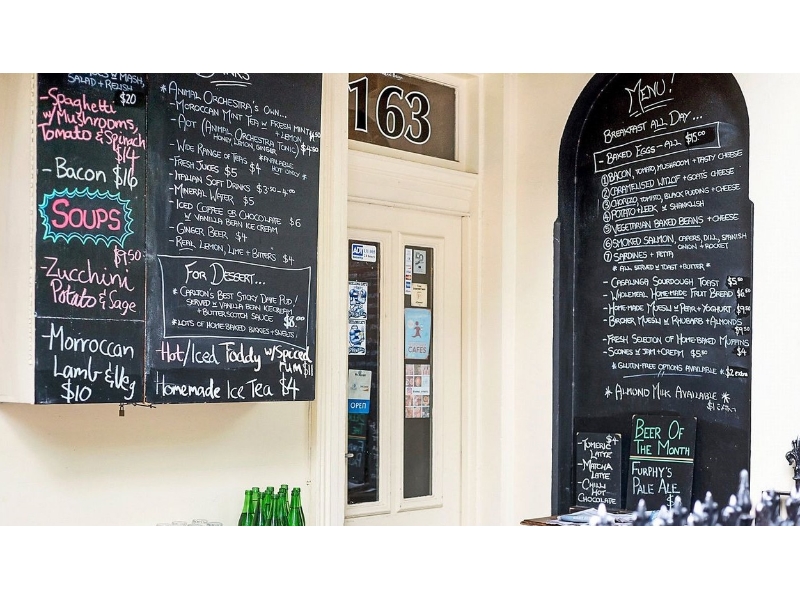 SALAD + RELISH
$20
-Spaghetti
w/Mushrooms,
Tomato & Spinach
$14
- Bacon $16
SOUPS
$9.50
-Zucchini
Potato & Sage
-Morroccan
Lamb & Veg
$10
DRINKS
* ANIMAL ORCHESTRA'S OWN...
- MOROCCAN MINT TEA W FRESH MINT
+ LEMON $4.50
- AOT (ANIMAL ORCHESTRA TONIC) $4.50
HONEY, LEMON, GINGER
- WIDE RANGE OF TEAS $4 *AVAILABLE
HOT ONLY *
- FRESH JUICES $5
- ITALIAN SOFT DRINKS $3.50-4.00
- MINERAL WATER $5
- ICED COFFEE OR CHOCOLATE $6
W VANILLA BEAN ICE CREAM
- GINGER BEER $4
- REAL LEMON, LIME + BITTERS $4
FOR DESSERT...
* CARLTON'S BEST STICKY DATE PUD!
SERVED W VANILLA BEAN ICECREAM
+ BUTTERSCOTCH SAUCE $8.00
*LOTS OF HOME-BAKED BIKKIES + SHELVES!
Hot/Iced Toddy w/Spiced
rum $11
Homemade Ice Tea $4
163
ADT
CAFES
OPEN
MENU!
BREAKFAST ALL DAY...
- BAKED EGGS - ALL $15.00
① BACON, TOMATO, MUSHROOM + TASTY CHEESE
② CARAMELISED WITLOF + GOATS CHEESE
③ CHORIZO, TOMATO, BLACK PUDDING + CHEESE
④ POTATO + LEEK W SHANKLISH
⑤ VEGETARIAN BAKED BEANS + CHEESE
⑥ SMOKED SALMON, CAPERS, DILL, SPANISH
ONION + ROCKET
⑦ SARDINES + FETTA
* ALL SERVED W TOAST + BUTTER *
- CASALINGA SOURDOUGH TOAST $5.00
- WHOLEMEAL HOME-MADE FRUIT BREAD $6.50
- HOME-MADE MUESLI W PEAR + YOGHURT $9.50
- BIRCHER MUESLI W RHUBARB + ALMONDS
$9.50
- FRESH SELECTION OF HOME-BAKED MUFFINS
$4
- SCONES W JAM + CREAM $5.50
* GLUTEN-FREE OPTIONS AVAILABLE * $2 extra
* ALMOND MILK AVAILABLE *
$4
- TUMERIC
LATTE
- MATCHA
LATTE
- CHILLI
HOT
CHOCOLATE
BEER OF
THE MONTH
FURPHY'S
PALE ALE